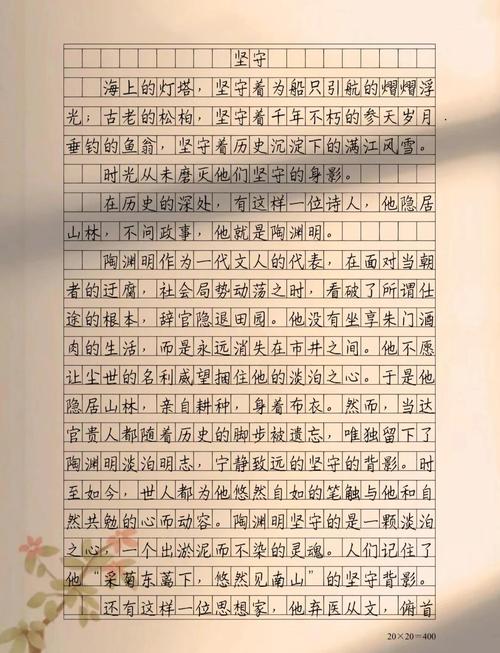 坚守
海上的灯塔，坚守着为船只引航的熠熠浮
光；古老的松柏，坚守着千年不朽的参天岁月．
垂钓的鱼翁，坚守着历史沉淀下的满江风雪。
时光从未磨灭他们坚守的身影。
在历史的深处，有这样一位诗人，他隐居
山林，不问政事，他就是陶渊明。
陶渊明作为一代文人的代表，在面对当朝
者的迂腐，社会局势动荡之时，看破了所谓仕
途的根本，辞官隐退田园。他没有坐享朱门酒
肉的生活，而是永远消失在市井之间。他不愿
让尘世的名利威望捆住他的淡泊之心。于是他
隐居山林，亲自耕种，身着布衣。然而，当达
官贵人都随着历史的脚步被遗忘，唯独留下了
陶渊明淡泊明志，宁静致远的坚守的背影。时
至如今，世人都为他悠然自如的笔触与他和自
然共勉的心而动容。陶渊明坚守的是一颗淡泊
之心，一个出淤泥而不染的灵魂。人们记住了
他“采菊东蓠下，悠然见南山”的坚守背影。
还有这样一位思想家，他弃医从文，俯首
20×20=400